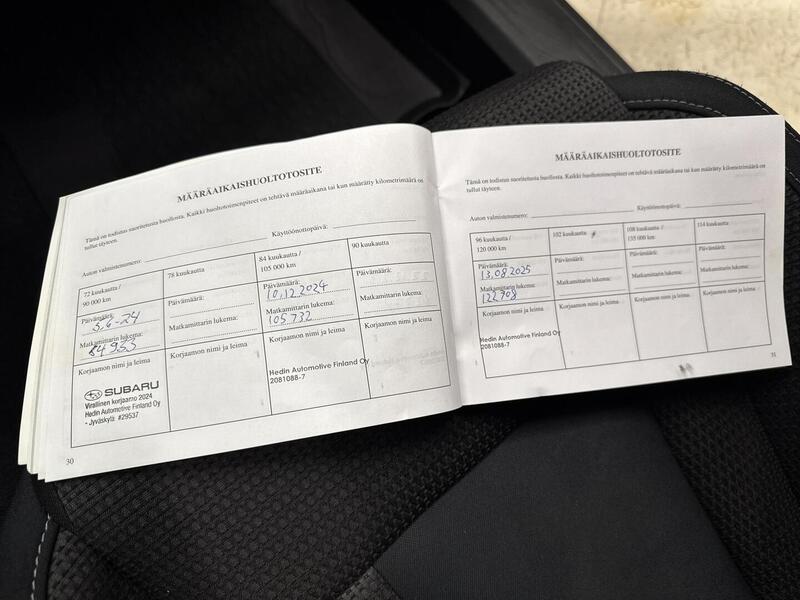 MÄÄRÄAIKAISHUOLTOTOSITE
Tämä on todistus suoritetusta huollosta. Kaikki huoltotoimenpiteet on tehtävä määräaikana tai kun määrätty kilometrimäärä on
tullut täyteen.
Auton valmistenumero: Käyttöönottopäivä:
72 kuukautta /
90 000 km
Päivämäärä:
5.6-24
Matkamittarin lukema:
84953
Korjaamon nimi ja leima
SUBARU
Virallinen korjaamo 2024
Hedin Automotive Finland Oy
- Jyväskylä: #29537
78 kuukautta
Päivämäärä:
Matkamittarin lukema:
Korjaamon nimi ja leima
84 kuukautta /
105 000 km
Päivämäärä:
10.12.2024
Matkamittarin lukema:
105732
Korjaamon nimi ja leima
Hedin Automotive Finland Oy
2081088-7
90 kuukautta
Päivämäärä:
Matkamittarin lukema:
Korjaamon nimi ja leima
30
MÄÄRÄAIKAISHUOLTOTOSITE
Tämä on todistus suoritetusta huollosta. Kaikki huoltotoimenpiteet on tehtävä määräaikana tai kun määrätty kilometrimäärä on
tullut täyteen.
Auton valmistenumero: Käyttöönottopäivä:
96 kuukautta /
120 000 km
Päivämäärä:
13.08.2025
Matkamittarin lukema:
122708
Korjaamon nimi ja leima
Hedin Automotive Finland Oy
2081088-7
102 kuukautta
Päivämäärä:
Matkamittarin lukema:
Korjaamon nimi ja leima
108 kuukautta /
135 000 km
Päivämäärä:
Matkamittarin lukema:
Korjaamon nimi ja leima
114 kuukautta
Päivämäärä:
Matkamittarin lukema:
Korjaamon nimi ja leima
31